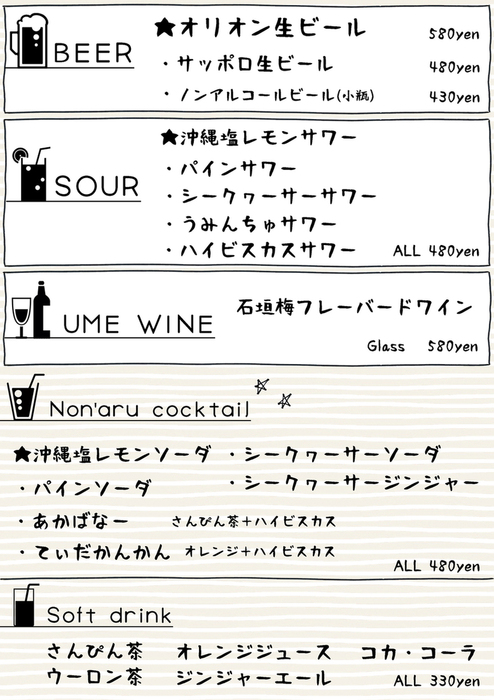 BEER
★オリオン生ビール 580yen
・サッポロ生ビール 480yen
・ノンアルコールビール(小瓶) 430yen
SOUR
★沖縄塩レモンサワー
・パインサワー
・シークヮーサーサワー
・うみんちゅサワー
・ハイビスカスサワー ALL 480yen
UME WINE
石垣梅フレーバードワイン
Glass 580yen
Non'aru cocktail
★沖縄塩レモンソーダ ・シークヮーサーソーダ
・パインソーダ ・シークヮーサージンジャー
・あかばなー さんぴん茶+ハイビスカス
・てぃだかんかん オレンジ+ハイビスカス
ALL 480yen
Soft drink
さんぴん茶 オレンジジュース コカ・コーラ
ウーロン茶 ジンジャーエール ALL 330yen